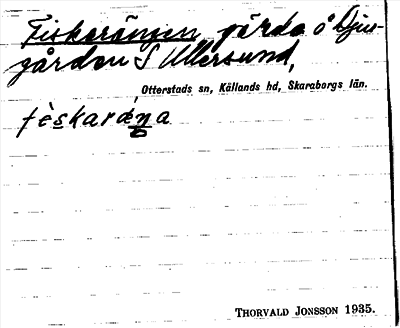 Fiskarängen, gärde å Djur-
gården S Ullersund,
Otterstads sn, Kållands hd, Skaraborgs län.
fèskaráŋa
THORVALD JONSSON 1935.